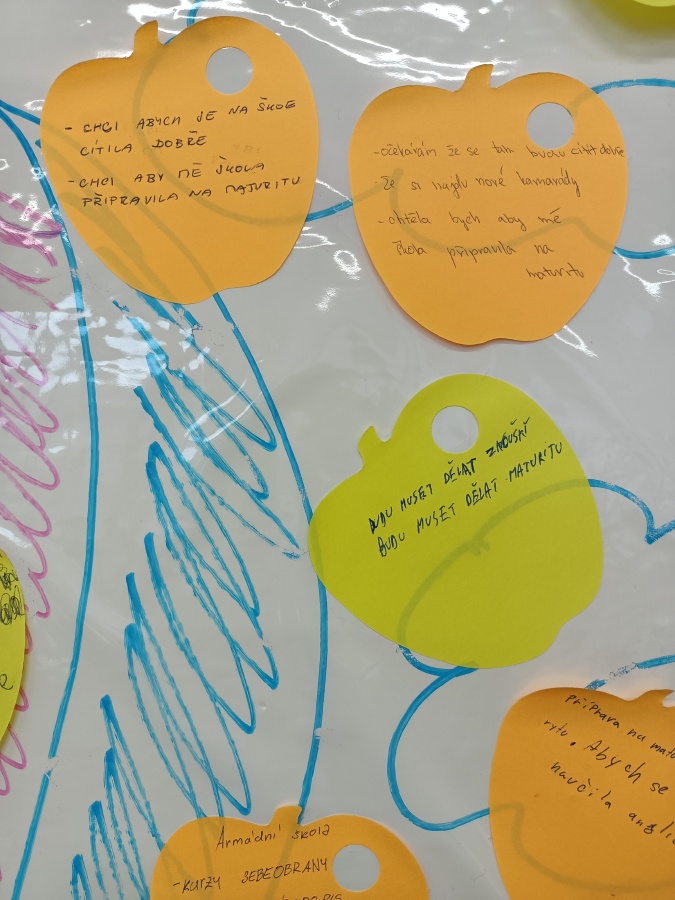 - CHCI ABYCH JE NA ŠKOE
CÍTILA DOBŘE
- CHCI ABY MĚ ŠKOLA
PŘIPRAVILA NA MATURITU
- očekávám že se tam budu cítit dobře
že si najdu nové kamarády
- chtěla bych aby mě
škola připravila na
maturitu
BUDU MUSET DĚLAT ZKOUŠKY
BUDU MUSET DĚLAT MATURITU
příprava na matu
ritu. Abych se
naučila angli
Armádní škola
- KURZY SEBEOBRANY